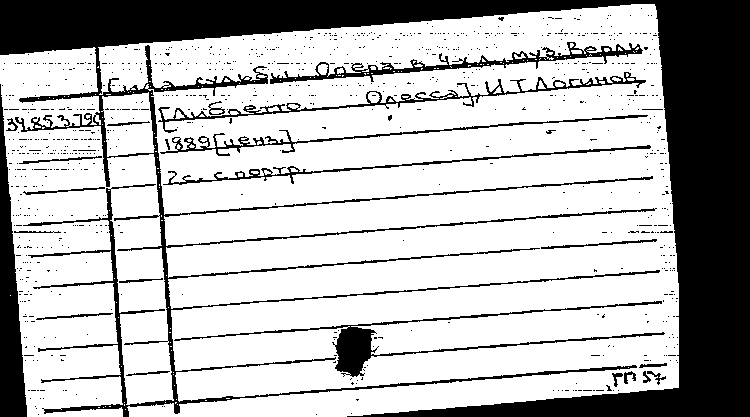 Сила судьбы. Опера в 4-х д., муз. Верди.
34.85.3.790 [Либретто. Одесса], И.Т. Логинов,
1889 [ценз.]
2 с. с портр.
ГП 57